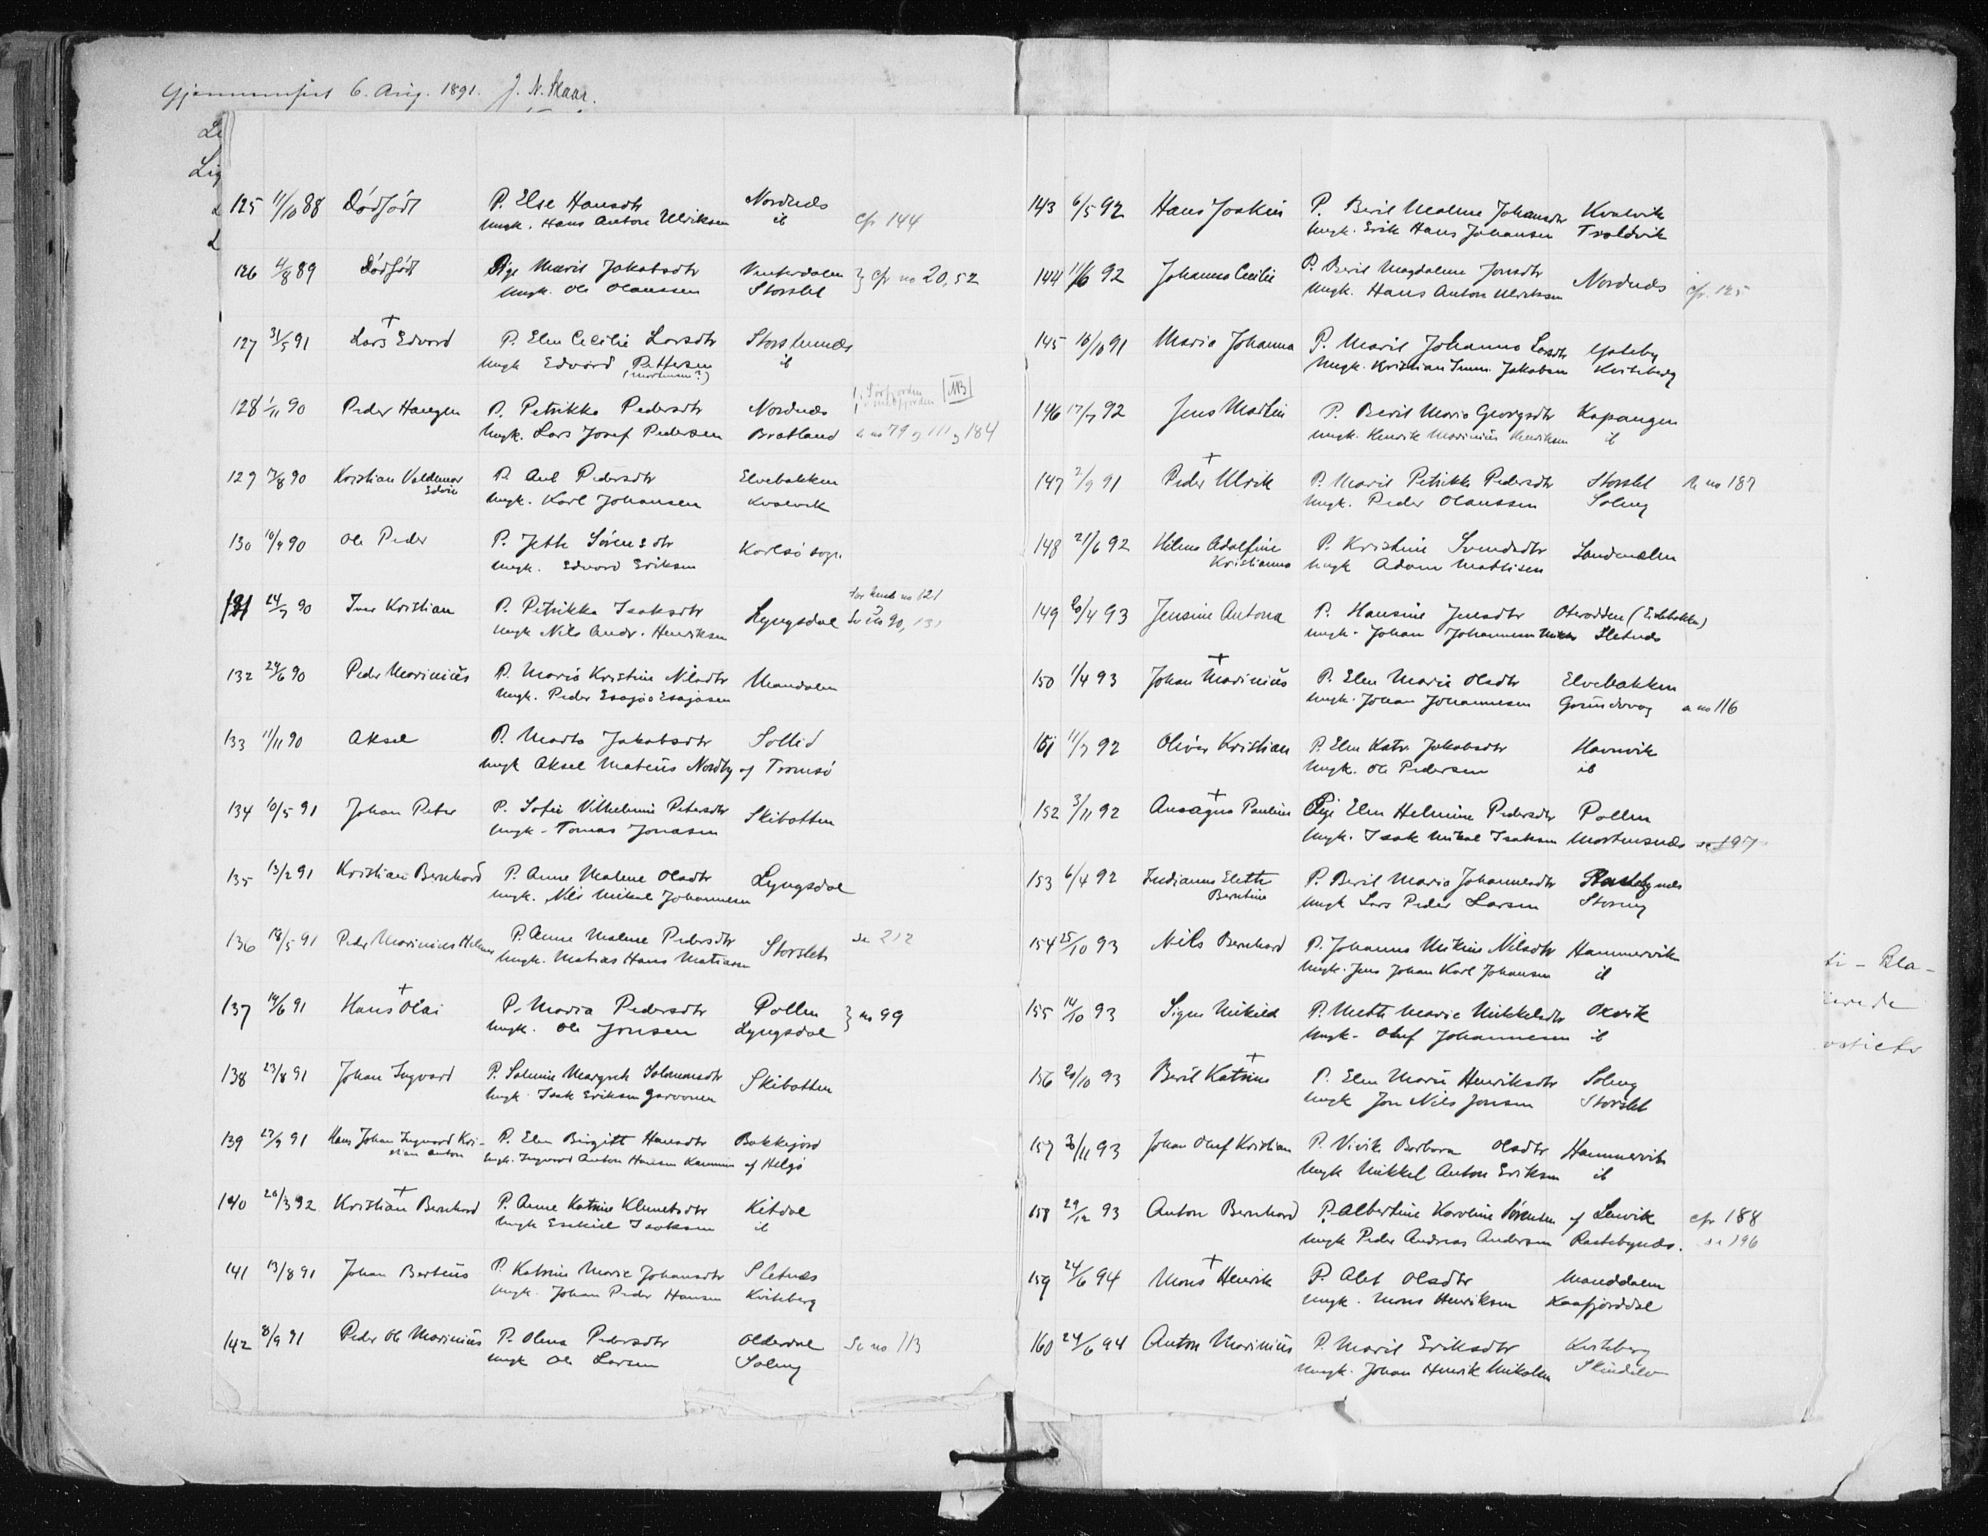 6. Aug. 1891. J. N. Skaar.
Li
Lig
125 11/10 88 Dødfødt P. Else Hansdtr Nordnæs
Ungk. Hans Anton Ulriksen ib cfr 144
126 4/8 89 Dødfødt Pige Marit Jakobsdtr Vinterdalen } cfr no 20, 52
Ungk. Ole Olaussen Storslet
127 31/5 91 Lars Edvard + P. Elen Cecilie Larsdtr
Ungk Edvard Pettersen ib
(Mortensen?)
128 1/11 90 Peder Hangen P. Petrikke Pedersdtr Nordnæs
Ungk. Lars Josef Pedersen Bratland no 79 og 111 og 184
129 90 Kristian Valdemar P. Ane Pedersdtr Elvebakken
Edvin Ungk. Karl Johansen Kvalvik
130 10/9 90 Ole Peder P. Jette Sørensdtr Karlsø sogn
Ungk. Edvard Eriksen
131 24/9 90 Iver Kristian P. Petrikka Isaksdtr Lyngsdal
Ungk Nils Andr. Henriksen
132 24/6 90 Peder Marinius P. Maria Kristine Nilsdtr Manndalen
Ungk. Peder Esajas Esajasen
133 11/11 90 Aksel P. Marta Jakobsdtr Sollid
Ungk Aksel Mateus Nordby af Tromsø
134 10/5 91 Johan Peter P. Sofie Vilhelmine Petersdtr Skibotten
Ungk - Tomas Jonasen
135 13/2 91 Kristian Bernhard P. Anne Malene Olsdtr Lyngsdal
Ungk. Nils Mikal Johannesen
136 18/5 91 Peder Marinius Helmer P. Anne Malene Pedersdtr Storslet se 212
Ungk. Matias Hans Matiasen
137 14/6 91 Hans + Olai P. Maria Pedersdtr Pollen } no 99
Ungk. Ole Jonsen Lyngsdal
138 23/8 91 Johan Ingvard P. Salmine Margreth Salamonsdtr Skibotten
Ungk. Isak Eriksen
139 27/9 91 Hans Johan Ingvard Kri- P. Elen Birgitt Hansdtr Bakkejord
stian Anton Ungk. Ingvard Anton Hansen af Helgø
140 20/3 92 Kristian + Bernhard P. Anne Katrine Klemetsdtr Kitdal
Ungk Esekiel Isaksen ib
141 13/8 91 Johan Berteus P. Katrine Marie Johansdtr Sletnæs
Ungk. Johan Peder Hansen Kviteberg
142 8/9 91 Peder Ole Marinius P. Olena Pedersdtr Olderdal Se no 113
Ungk Ole Larsen Soleng
143 6/5 92 Hans Joakim P. Berit Malene Johansdtr Kvalvik
Ungk. Erik Hans Johansen Troldvik
144 11/6 92 Johanna Cecilie P. Berit Magdalene Jonsdtr Nordnæs cfr. 125
Ungk. Hans Anton Ulriksen
145 16/10 91 Maria Johanna P. Marit Johanna Larsdtr
Ungk. Kristian Imm. Jakobsen Kviteberg
146 17/7 92 Jens Martin P. Berit Maria Georgsdtr Kopangen
Ungk. Henrik Marinius Henriksen ib
147 2/9 91 Peder + Ulrik P. Marit Petrikke Pedersdtr Storslet no 187
Ungk. Peder Olaussen Soleng
148 21/6 92 Helene Adolfine P. Kristine Svendsdtr
Kristianna Ungk Adam Mathisen
149 20/4 93 Jensine Antona P. Hansine Jensdtr Oterodden (Elvebakken)
Ungk. Johan Johannesen Sletnæs
150 1/4 93 Johan + Marinius P. Elen Marie Olsdtr Elvebakken
Ungk. Johan Johannesen no 116
151 11/7 92 Oliver Kristian P. Elen Katr. Jakobsdtr Havnvik
Ungk. Ole Pedersen ib
152 3/11 92 Pauline + Pige Elen Helmine Pedersdtr Pollen
Ungk. Isak Mikal Isaksen Mortensnæs se 197
153 6/4 92 Indianna Elette P. Berit Maria Johannesdtr Rastebynæs
Berntine Ungk Lars Peder Larsen Storeng
154 25/10 93 Nils Bernhard P. Johanna Mikine Nilsdtr Hammervik
Ungk. Jens Johan Karl Johansen ib
155 14/10 93 Signe P. Mette Marie Mikkelsdtr Oxvik
Ungk. Oluf Johannesen ib
156 20/10 93 Berit Katrine + P. Elen Marie Henriksdtr Soleng
Ungk Jon Nils Jonsen Storslet
157 30/11 93 Johan Oluf Kristian P. Vivik Barbara Olsdtr Hammervik
Ungk Mikkel Anton Eriksen ib
158 29/12 93 Anton Bernhard P. Albertine Karoline Sørensen af Lenvik cfr 188
Ungk Peder Andreas Andersen Rastebynæs. se 196
159 24/6 94 Mons + Henrik P. Alet Olsdtr Manddalen
Ungk. Mons Henriksen Kaafjorddal
160 24/6 94 Anton Marinius P. Marit Eriksdtr Kviteberg
Ungk. Johan Henrik Mikalsen Skindelv